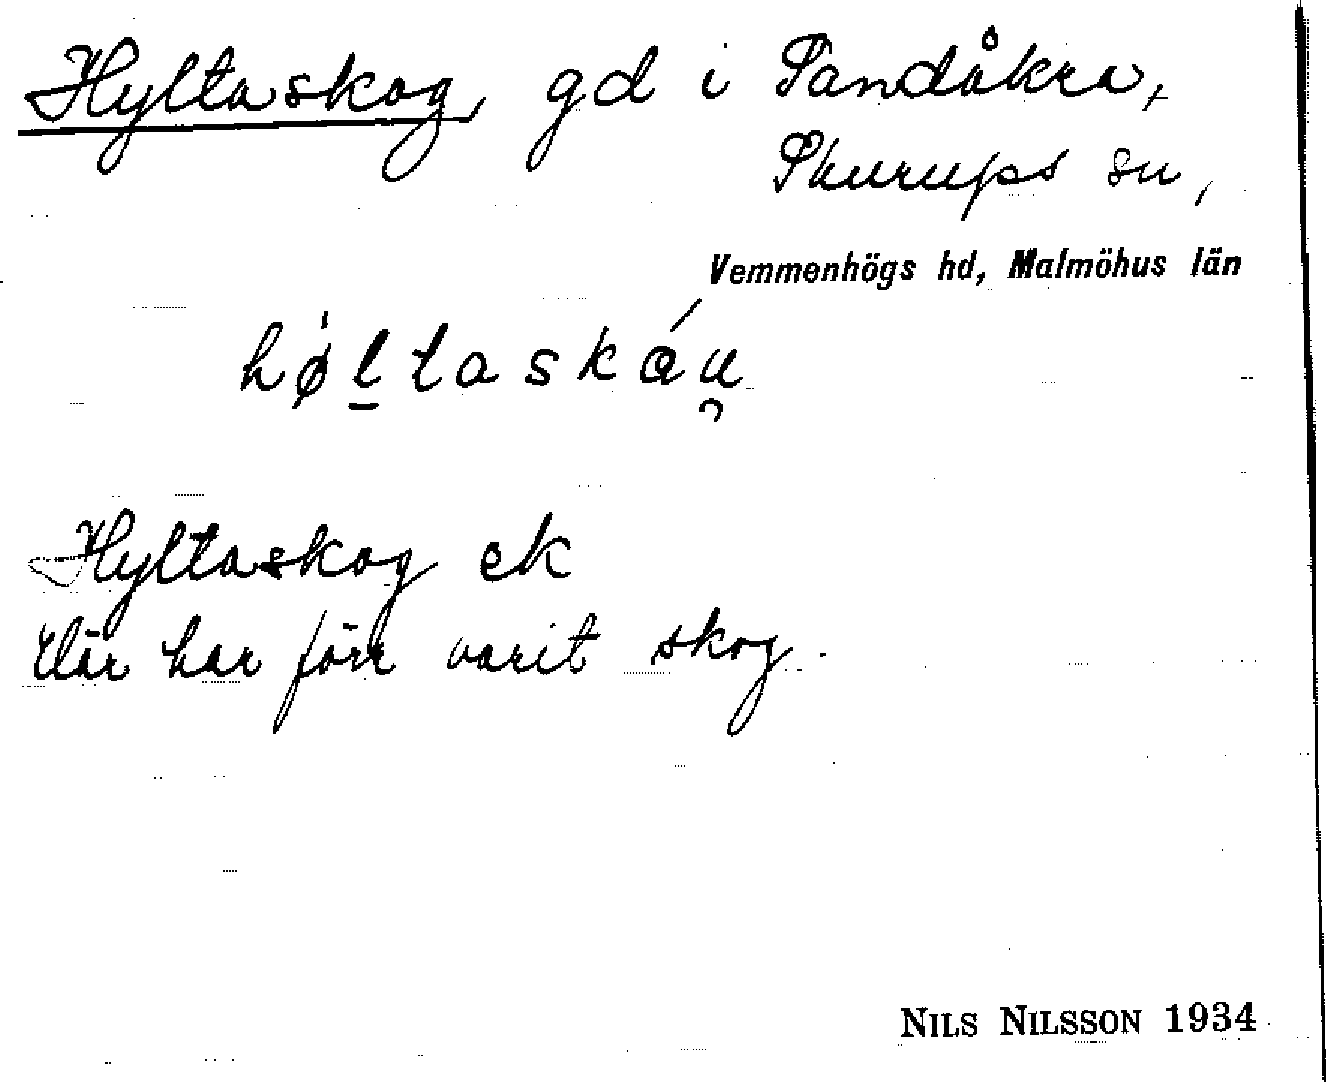 Hyltaskog, gd i Sandåkra,
Skurups sn,
Vemmenhögs hd, Malmöhus län
hø̍l̠taskáu̯
Hyltaskog ek
Där har förr varit skog.
NILS NILSSON 1934